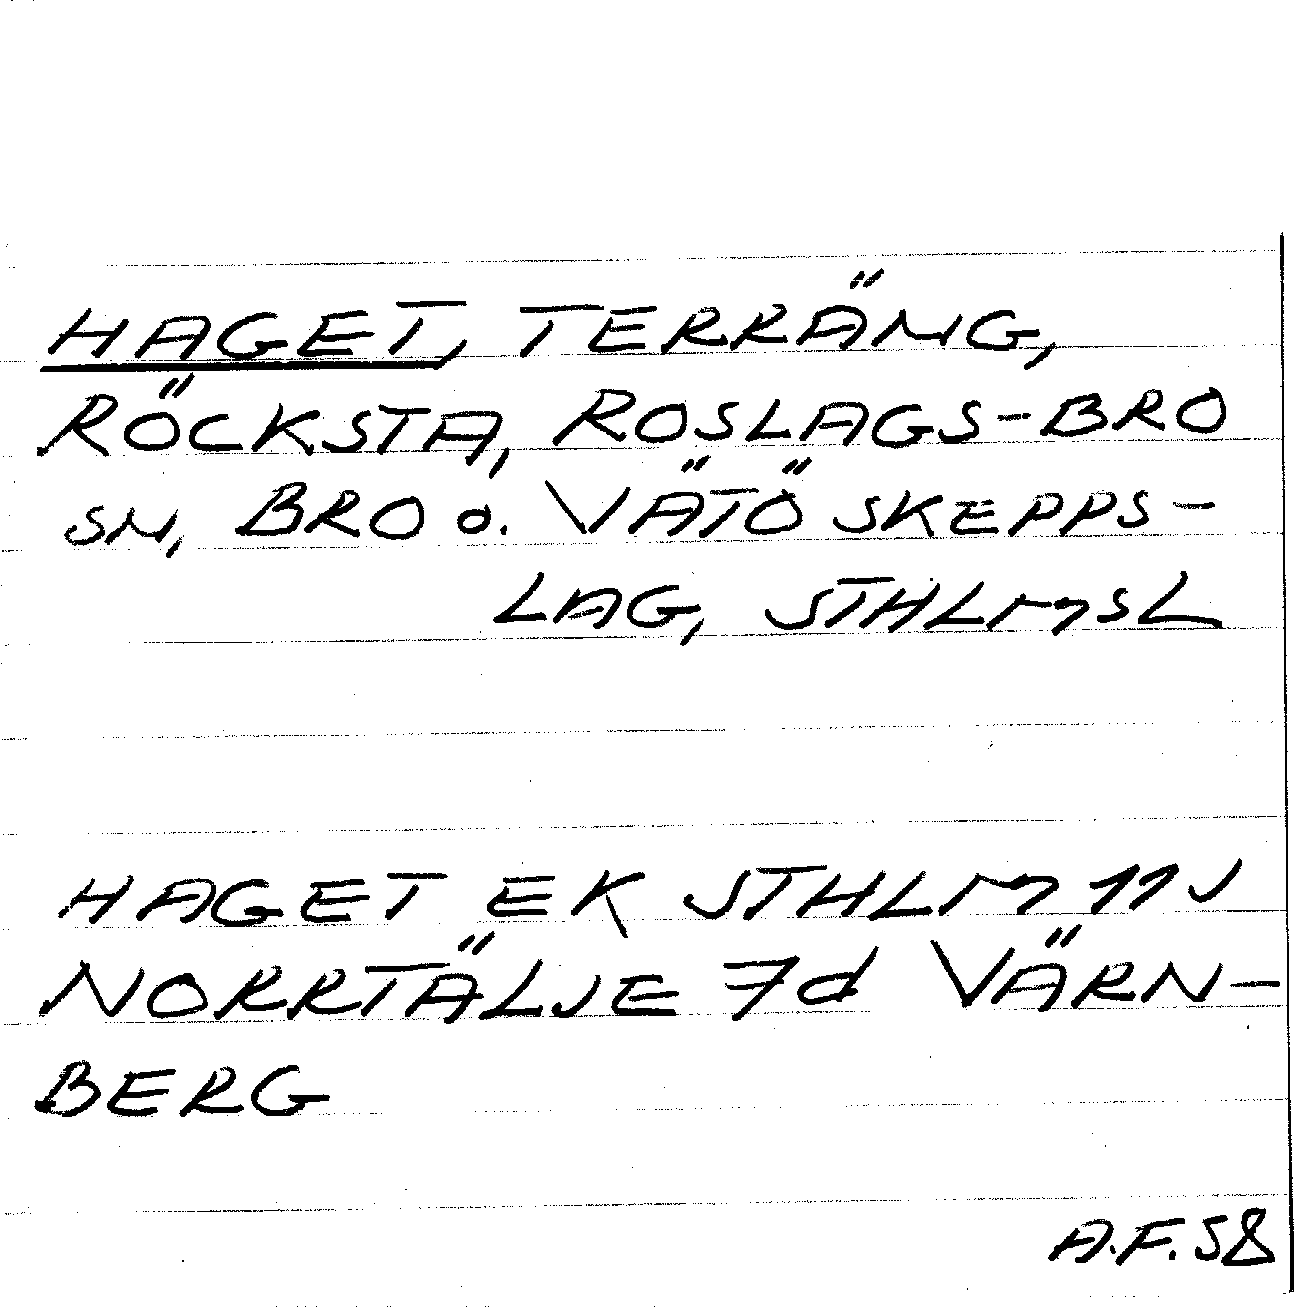 HAGET, TERRÄNG,
RÖCKSTA, ROSLAGS-BRO
SN, BRO o. VÄTÖ SKEPPS-
LAG, STHLMSL
HAGET EK STHLM 11J
NORRTÄLJE 7d VÄRN-
BERG
A.F. 58